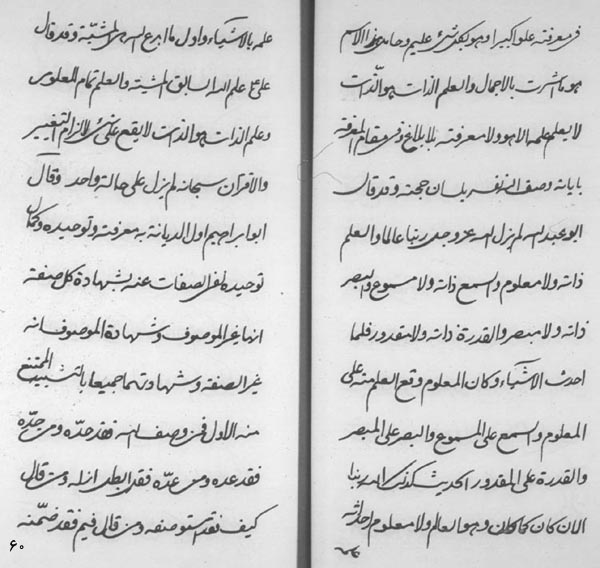 فی معرفته علوا کبیرا وهو بکل شیء علیم وحامد هذا الاسم
هو ما اشرت بالاجمال والعلم الذات هو الذات
لا یعلم علمه الا هو ولا معرفته بلا بلاغ وفی مقام المعرفة
بایاته وصف النفس بلسان حجته وقد قال
ابو عبد الله لم یزل الله عز وجل ربنا عالما والعلم
ذاته ولا معلوم والسمع ذاته ولا مسموع والبصر
ذاته ولا مبصر والقدرة ذاته ولا مقدور فلما
احدث الاشیاء وکان المعلوم وقع العلم منه علی
المعلوم والسمع علی المسموع والبصر علی المبصر
والقدرة علی المقدور الحدیث کذلک الله ربنا
الان کان کما کان وهو العالم ولا معلوم احداثه
علمه بالاشیاء واول ما ابدع الله المشیة وقد قال
علی علم الله السابق المشیة والعلم تمام المعلوم
وعلم الذات هو الذات لا یقع علی شیء لالزام التغییر
والاقتران سبحانه لم یزل علی حالة واحد وقال
ابو ابراهیم اول الدیانة به معرفته وتوحیده وکمال
توحیده نفی الصفات عنه بشهادة کل صفته
انها غیر الموصوف وشهادة الموصوف انه
غیر الصفته وشهادتهما جمیعا بالتثنیه الممتنع
منه الازل فمن وصف الله فقد حده ومن حده
فقد عده ومن عده فقد ابطل ازله ومن قال
کیف فقد استوصفه ومن قال فیم فقد ضمنه
۶۰